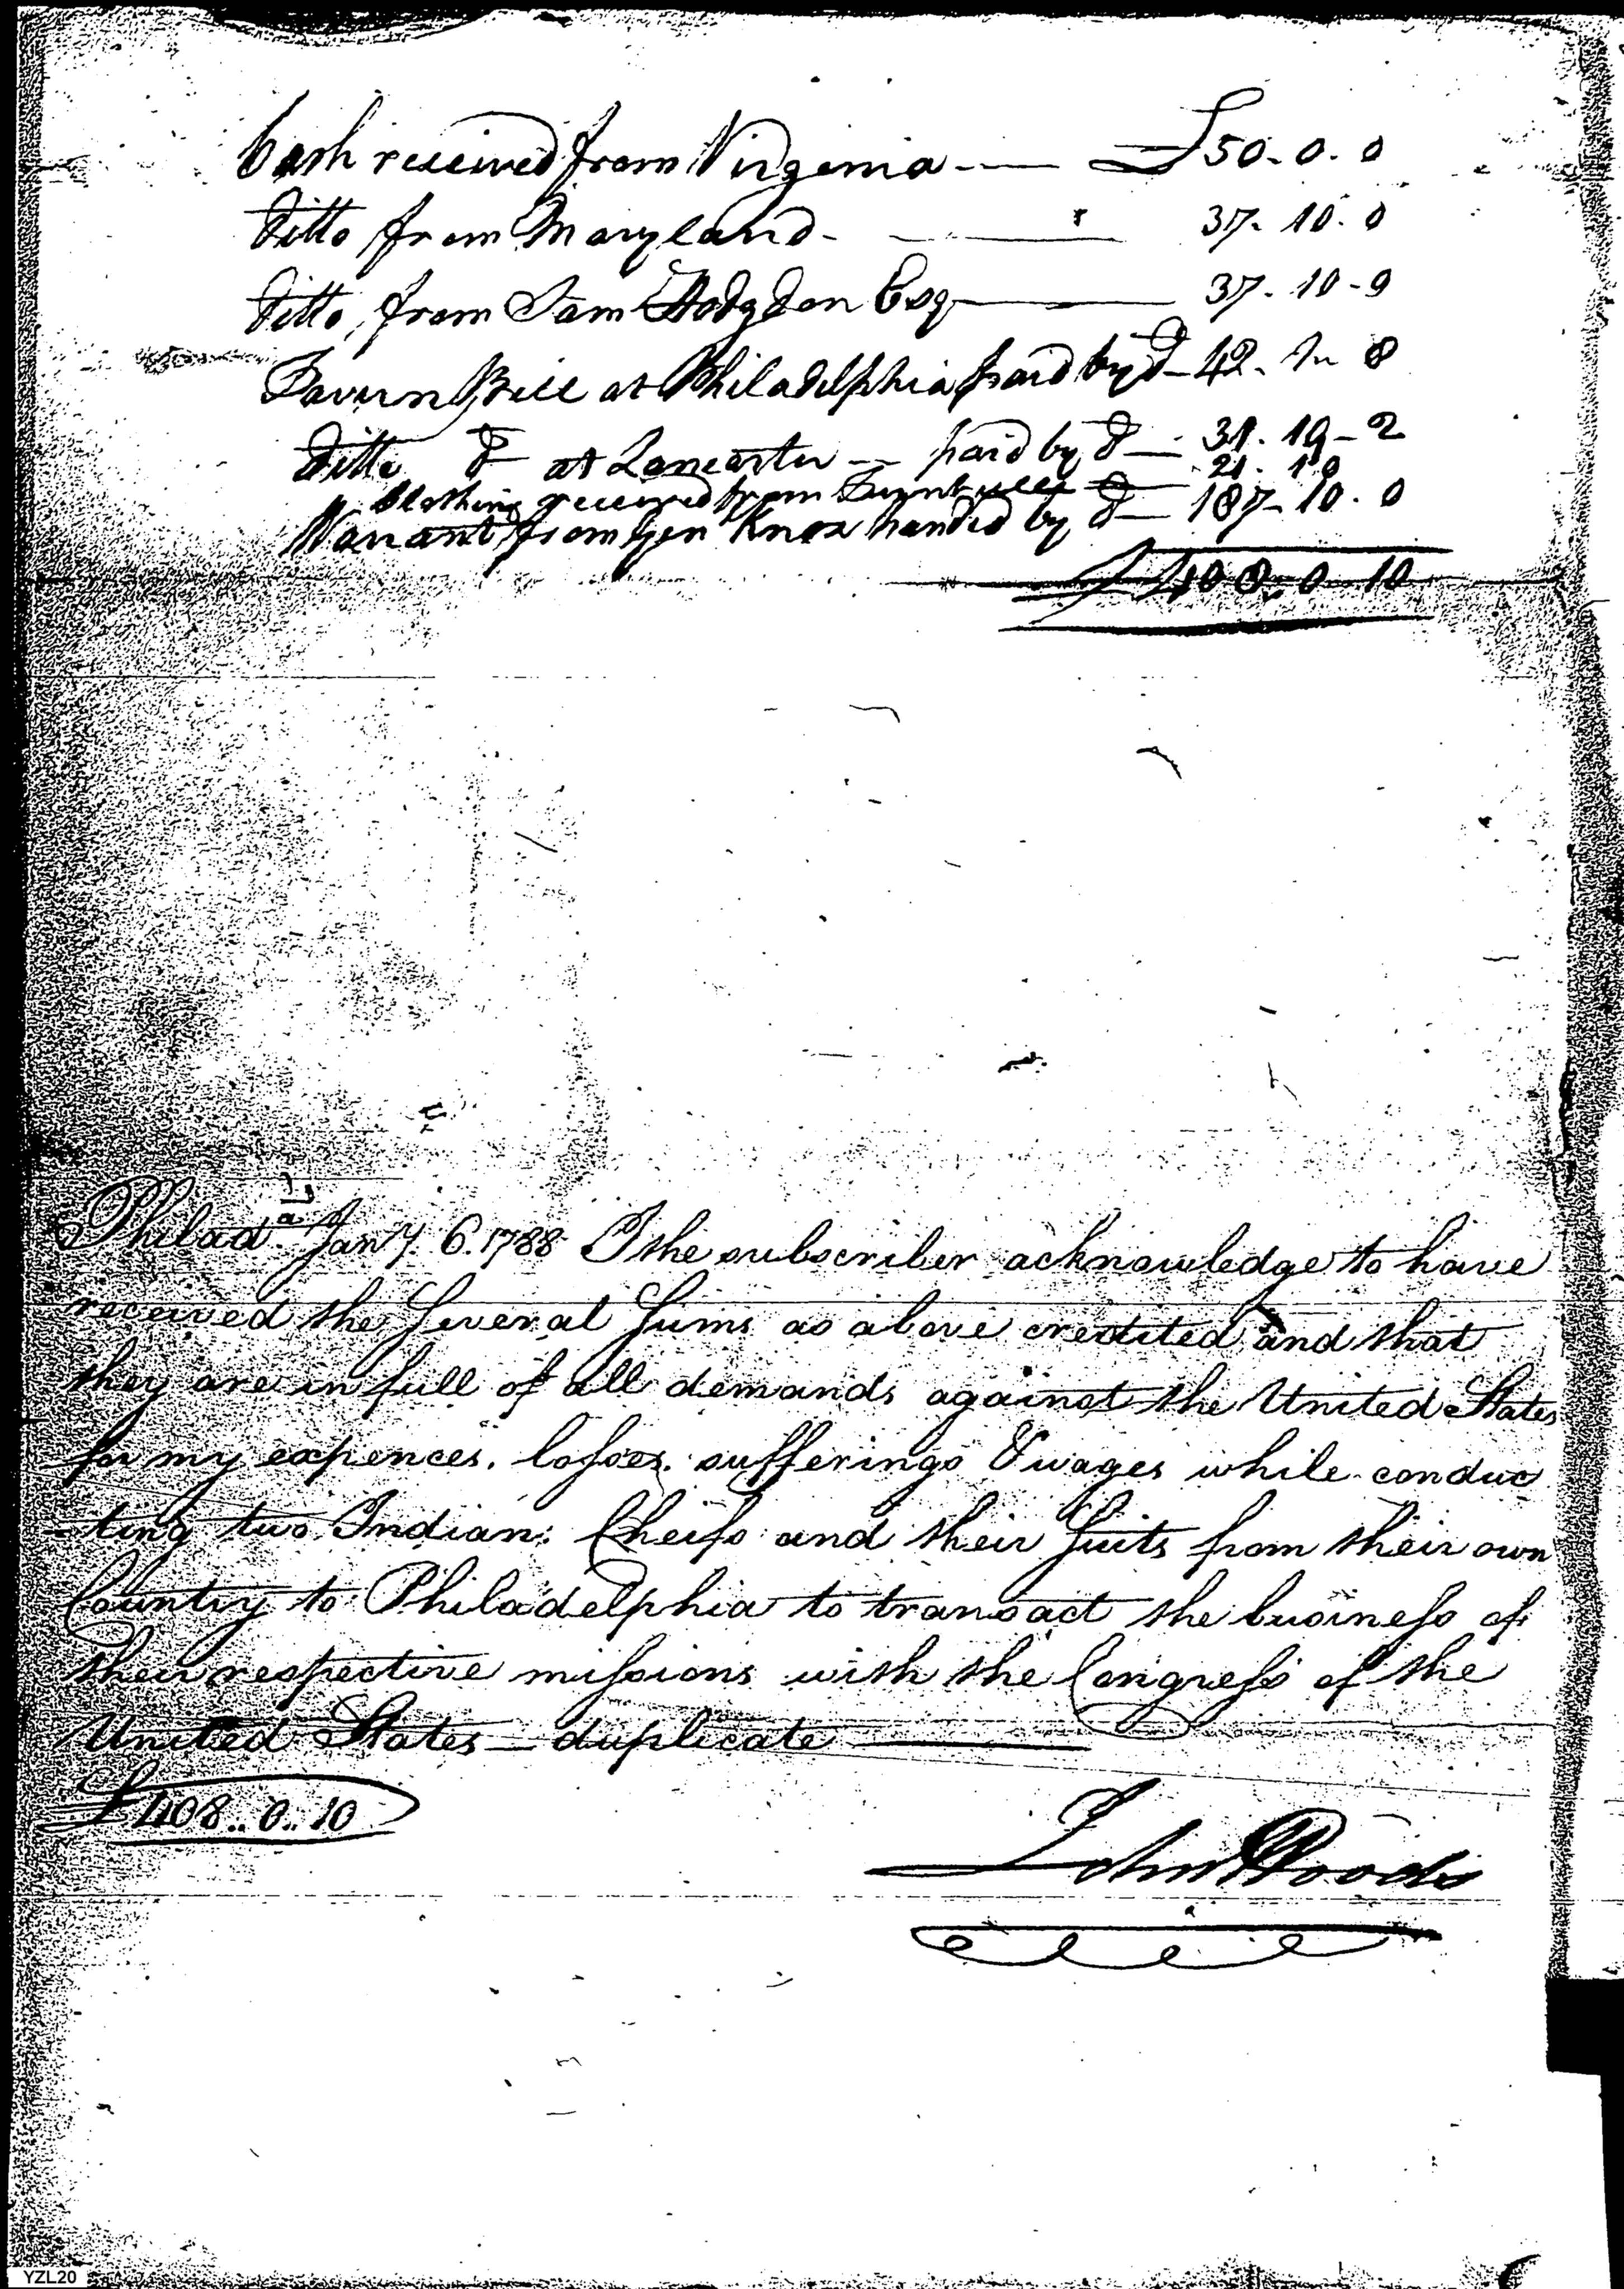 Cash received from Virginia — £50. 0. 0
Ditto from Maryland — 37. 10. 0
Ditto, from Sam Hodgdon Esq — 37. 10 - 0
Tavern Bill at Philadelphia paid by do — 42. 1 8
Ditto do at Lancaster — paid by do — 31. 19 - 2
Clothing received from Turnbull do — 21. 10
Warrant from Gen Knox handed by do — 187 - 10. 0
£408. 0 10
Philada. Jany. 6. 1788 I the subscriber acknowledge to have
received the Several Sums as above credited and that
they are in full of all demands against the United States
for my expences. losses. sufferings & wages while conduc
-ting two Indian Cheifs and their Suits from their own
Country to Philadelphia to transact the business of
their respective missions with the Congress of the
United States — duplicate
£408.. 0.. 10
John Woods
YZL20